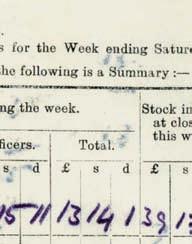 s for the Week ending Satur
the following is a Summary :—
ng the week.
Stock in
at clos
this w
ficers.
Total.
s d £ s d £ s
15 11 13 14 1 39 1